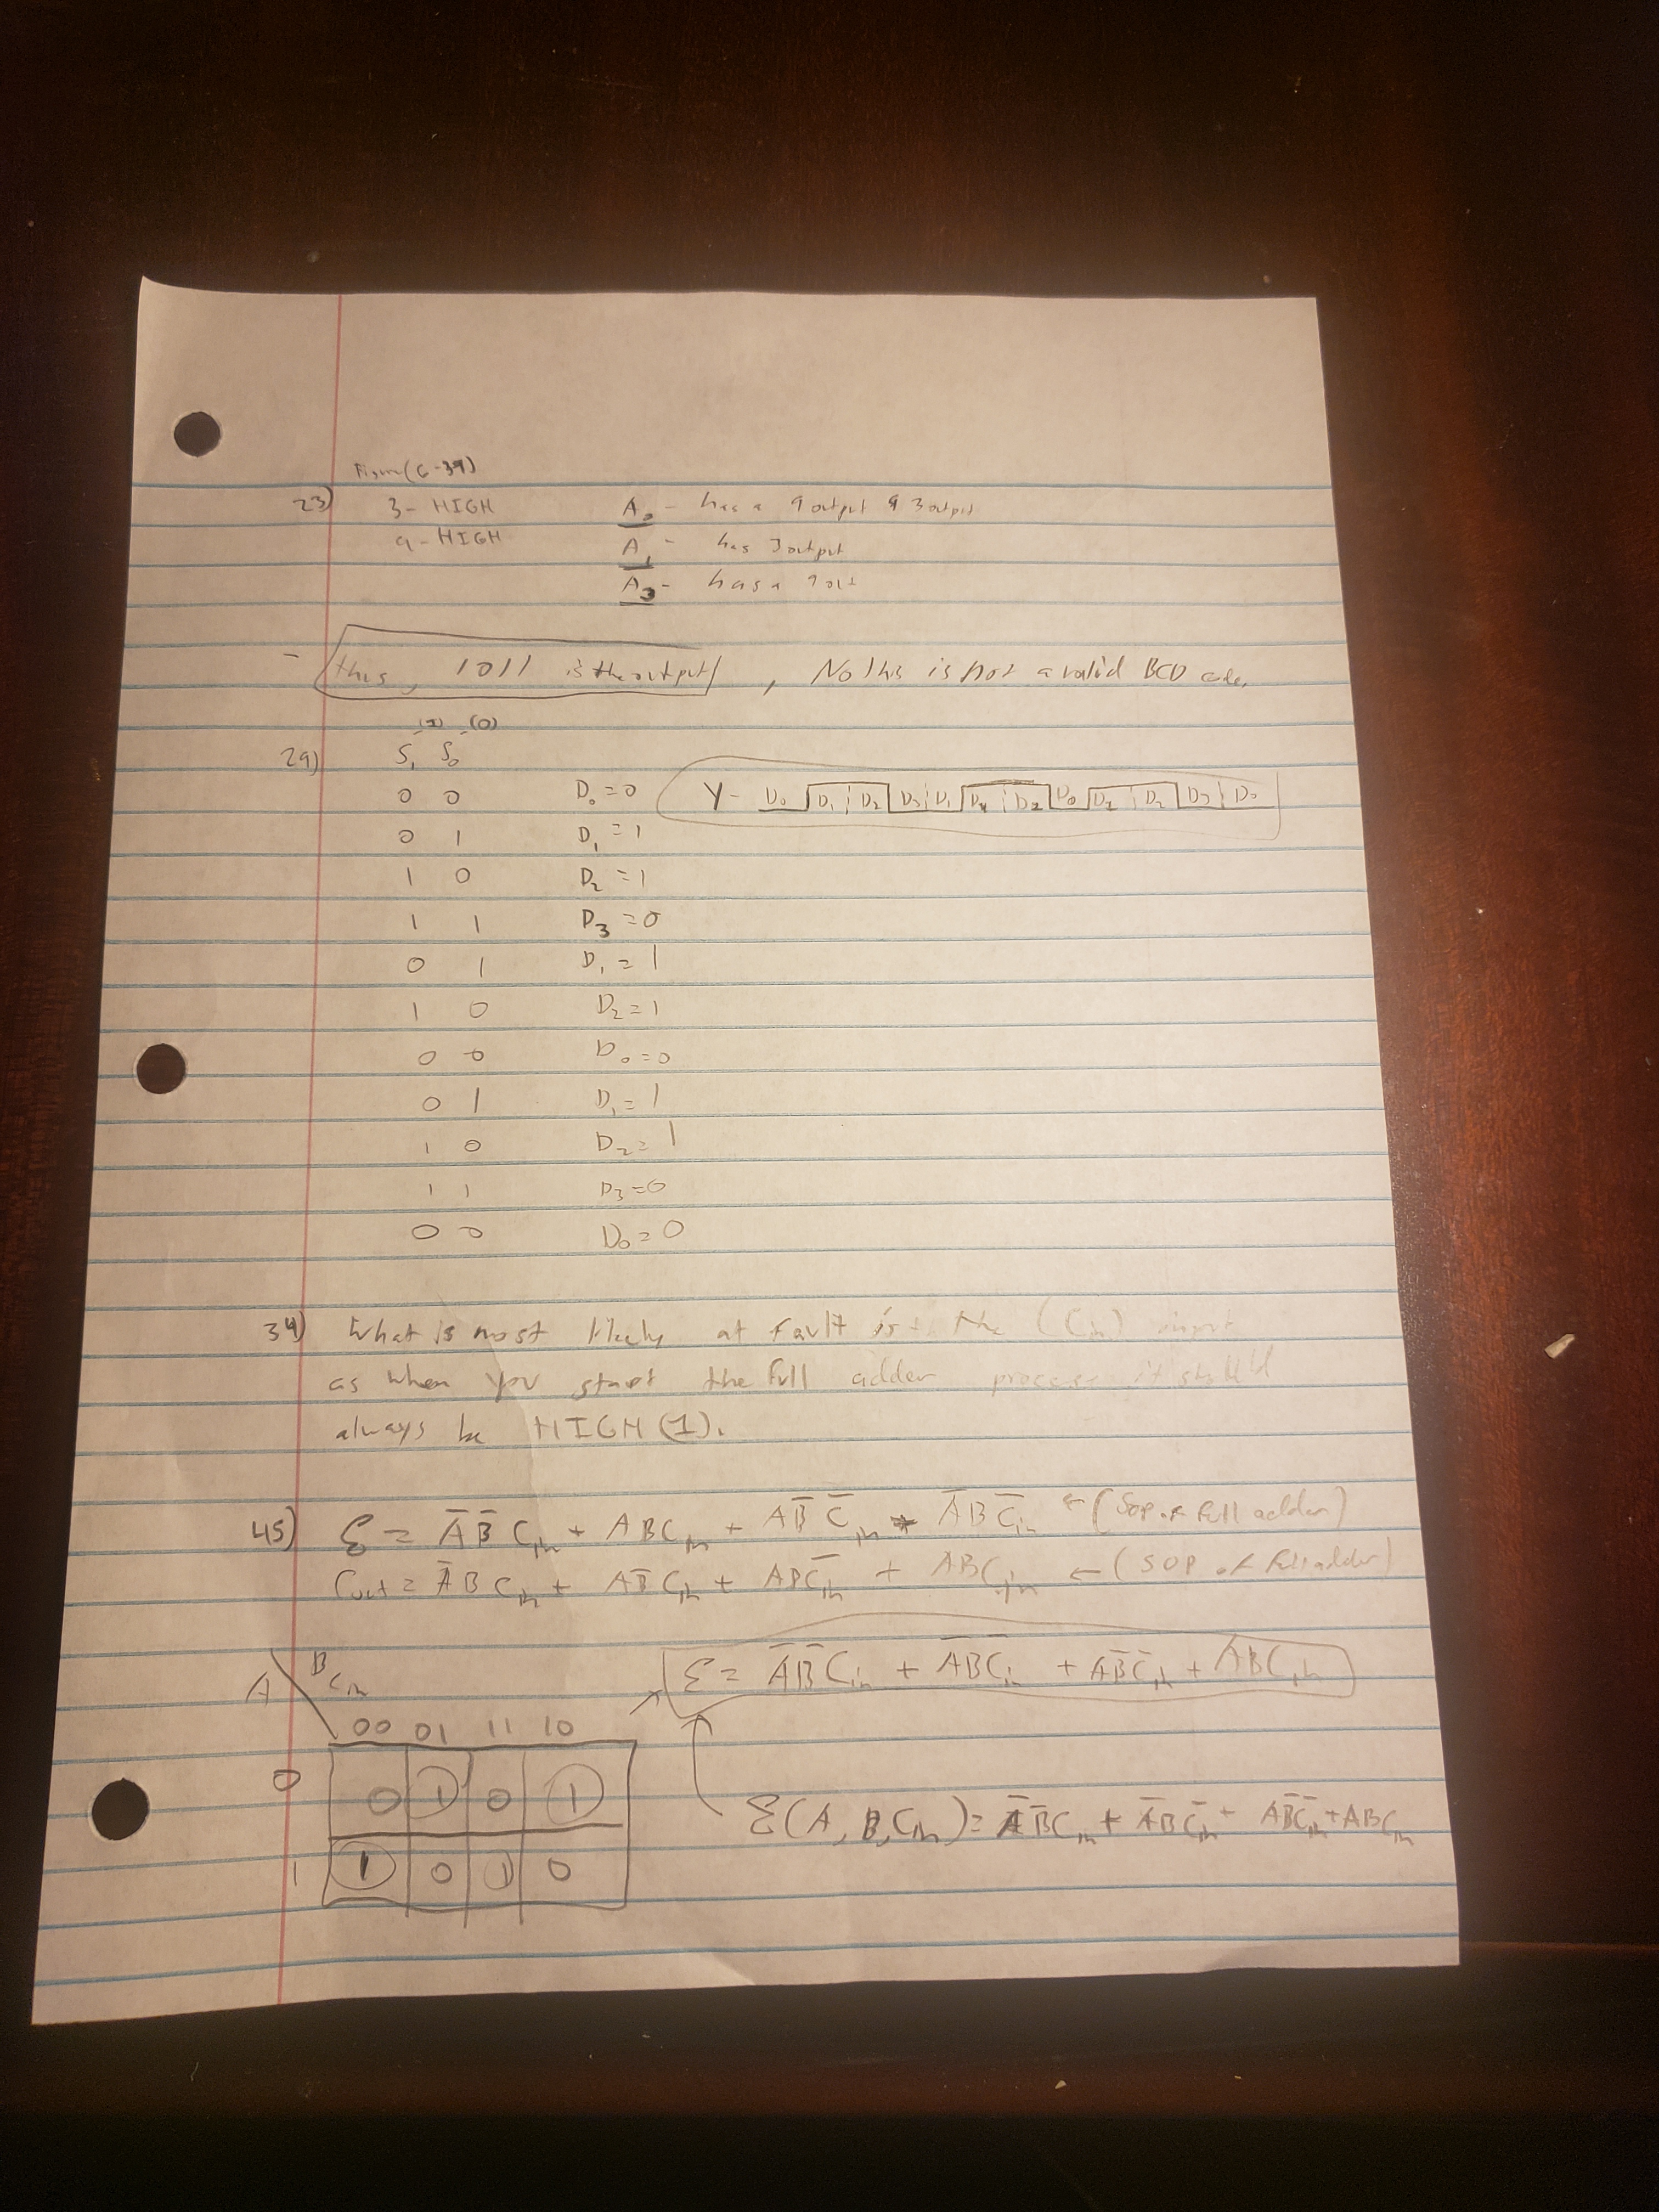 Figure (6-39)
23) 3 - HIGH A₀ - has a 9 output & 3 output
9 - HIGH A₁ - has 3 output
A₃ - has a 9
- thus, 1011 is the output, No this is not a valid BCD code.
(1) (0)
29) S₁ S₀
0 0 D₀ = 0 Y - D₀ D₁ D₂ D₃ D₁ D₂ D₀ D₂ D₃ D₀
0 1 D₁ = 1
1 0 D₂ = 1
1 1 D₃ = 0
0 1 D₁ = 1
1 0 D₂ = 1
0 0 D₀ = 0
0 1 D₁ = 1
1 0 D₂ = 1
1 1 D₃ = 0
0 0 D₀ = 0
34) What is most likely at fault is the (Cin) input
as when you start the full adder process it should
always be HIGH (1).
45) Σ = A̅ B̅ Cin + A B Cin + A B̅ C̅in + A̅ B C̅in ← (SOP of full adder)
Cout = A̅ B Cin + A B̅ Cin + A B C̅in + A B Cin ← (SOP of full adder)
Σ = A̅ B̅ Cin + A̅ B C̅in + A B̅ C̅in + A B Cin
A \ B Cin
00 01 11 10
0 0 1 0 1
1 1 0 1 0
Σ(A, B, Cin) = A̅ B̅ Cin + A̅ B C̅in + A B̅ C̅in + A B Cin